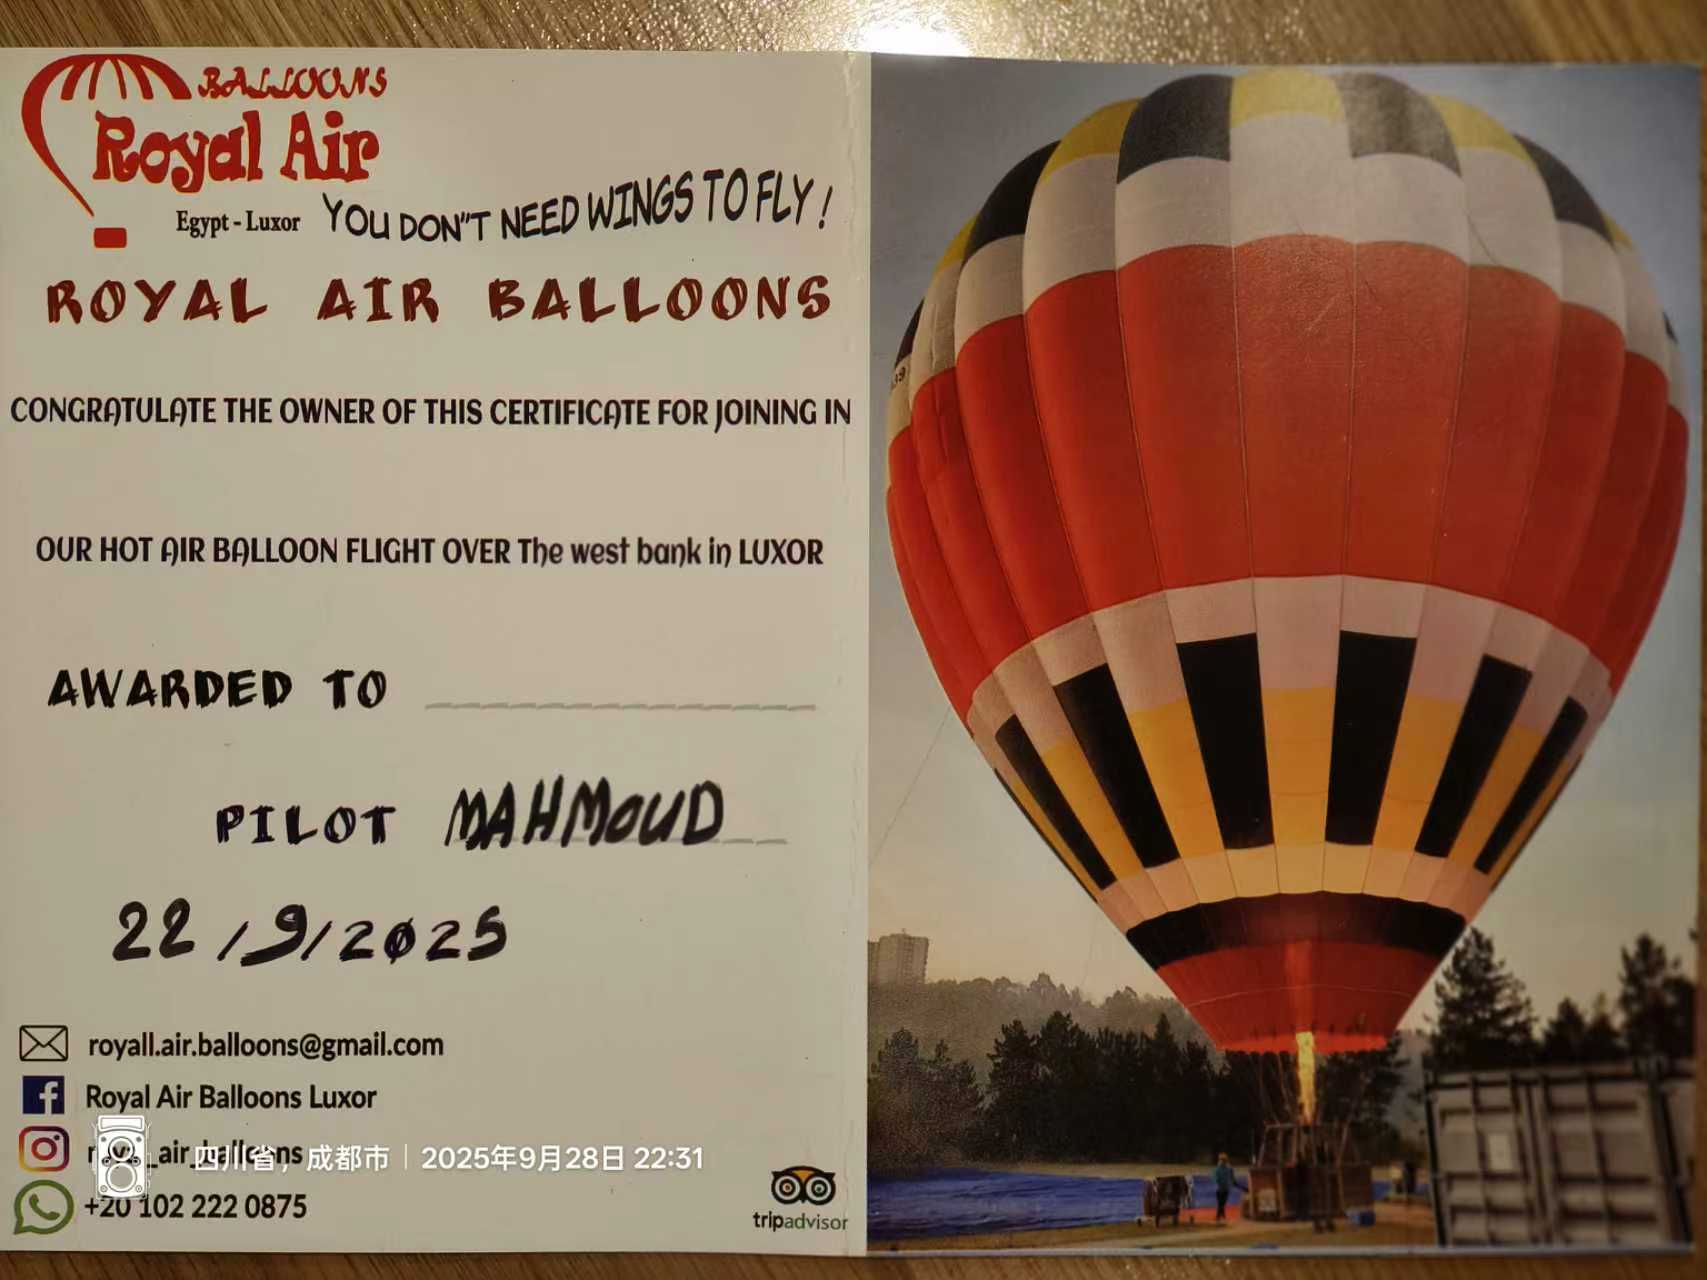 BALLOONS
Royal Air
Egypt - Luxor
YOU DON"T NEED WINGS TO FLY!
ROYAL AIR BALLOONS
CONGRATULATE THE OWNER OF THIS CERTIFICATE FOR JOINING IN
OUR HOT AIR BALLOON FLIGHT OVER The west bank in LUXOR
AWARDED TO
PILOT MAHMOUD
22/9/2025
royall.air.balloons@gmail.com
Royal Air Balloons Luxor
royal_air_balloons
四川省，成都市 | 2025年9月28日 22:31
+20 102 222 0875
tripadvisor